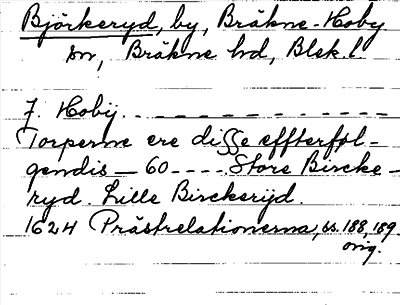 Björkeryd, by, Bräkne-Hoby
sn, Bräkne hd, Blek.l.
J. Hobÿ. – – – – – – – – – –
Torperne ere disse effterføl-
gendis — 60 – – – – Store Bircke-
ryd. Lille Birckerÿd.
1624 Prästrelationerna, ss. 188, 189.
orig.